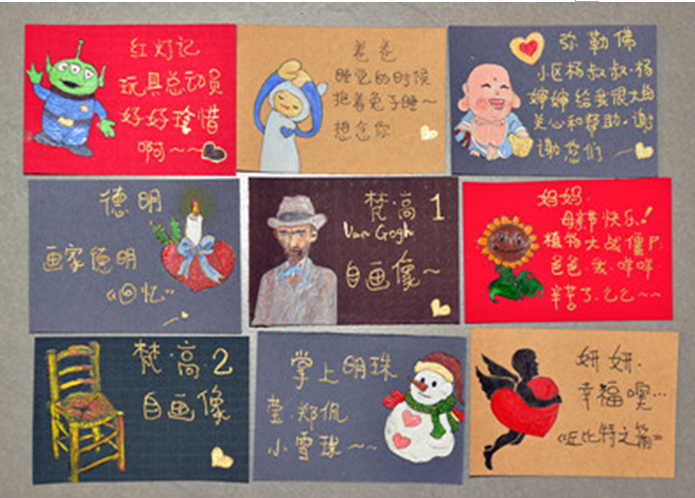 红灯记
玩具总动员
好好珍惜
啊~~
爸爸
睡觉的时候
抱着兔子睡~
想念你
弥勒佛
小区杨叔叔·杨
婶婶给我很大的
关心和帮助。谢
谢您们
德明
画家德明
《回忆》
梵·高1
Van Gogh
自画像~
妈妈·
母亲节快乐!
植物大战僵尸
爸爸·我·咩咩
辛苦了·乙乙~~
梵·高2
自画像
掌上明珠
萱·郑侃
小雪珠~~
妍妍·
幸福噢…
《丘比特之箭》